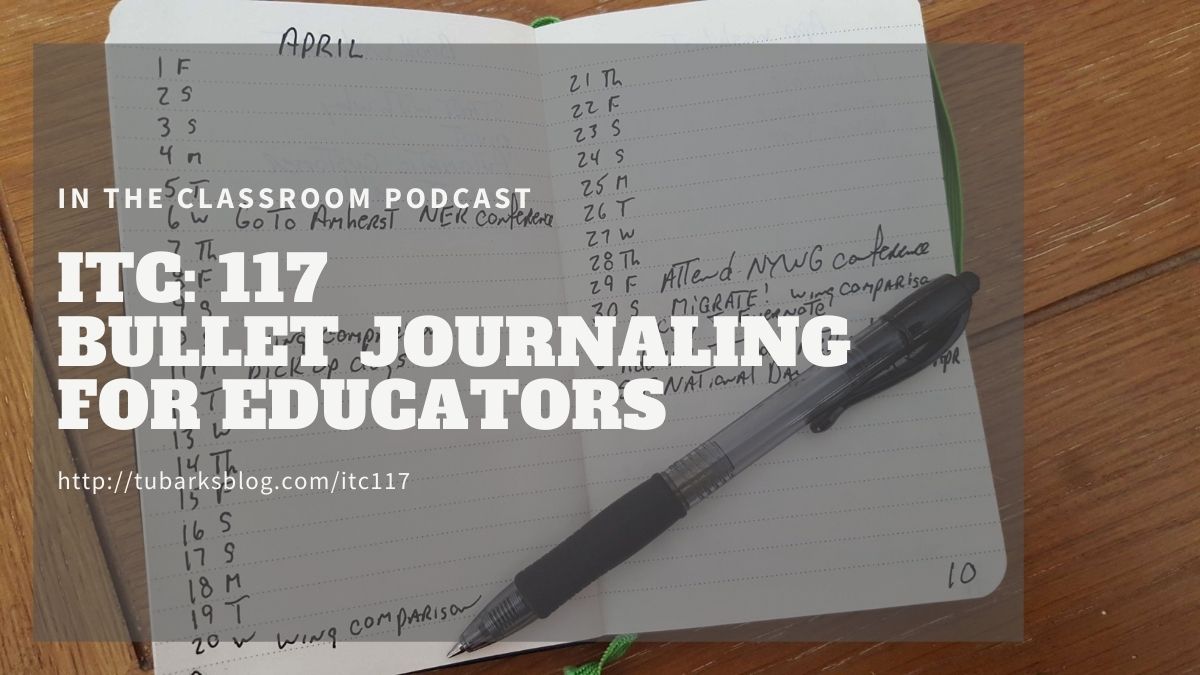 IN THE CLASSROOM PODCAST
ITC: 117
BULLET JOURNALING
FOR EDUCATORS
http://tubarksblog.com/itc117
APRIL
1 F
2 S
3 S
4 M
5 T
6 W Go To Amherst NER conference
7 Th
F
9 S
11 M pick up dogs
T
13 W
14 Th
15 F
16 S
17 S
18 M
19 T
20 W wing comparison
21 Th
22 F
23 S
24 S
25 M
26 T
27 W
28 Th
29 F Attend NYWG conference
30 S MIGRATE! wing
Evernote
National
10